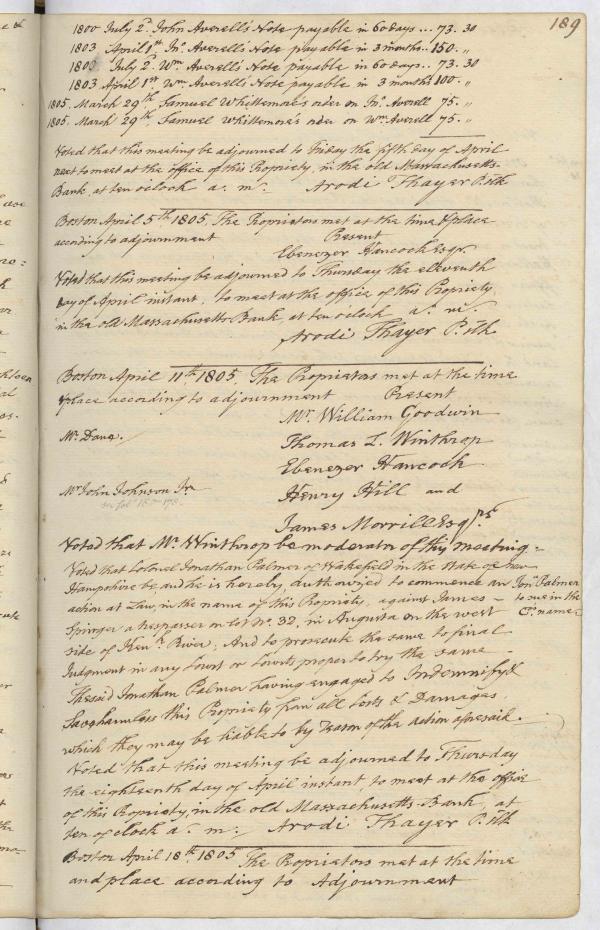 189
1800 July 2d. John Averell's Note payable in 60 days ... 73. 30
1803 April 1st. Jno. Averell's Note payable in 3 months .. 150. "
1800 July 2. Wm. Averell's Note payable in 60 days .. 73. 30
1803 April 1st. Wm. Averell's Note payable in 3 months 100. "
1805. March 29th. Samuel Whittemore's order on Jno. Averell 75. "
1805. March 29th. Samuel Whittemore's order on Wm Averell 75. "
Voted that this meeting be adjourned to Friday the fifth day of April
next to meet at the office of this Propriety, in the old Massachusetts
Bank, at ten oclock a. m. Arodi Thayer P. Clk
Boston April 5th 1805. The Proprietors met at the time & place
according to adjournment Present
Ebenezer Hancock Esqr.
Voted that this meeting be adjourned to Thursday the eleventh
day of April instant, to meet at the office of this Propriety
in the old Massachusetts Bank at ten oclock a. m.
Arodi Thayer P. Clk
Boston April 11th 1805. The Proprietors met at the time
& place according to adjournment Present
Mr. William Goodwin
Mr. Dana. Thomas L. Winthrop
Ebenezer Hancock
Mr John Johnson Jr. Henry Hill and
James Morrill Esqrs.
Voted that Mr. Winthrop be moderator of this meeting.
Voted that Colonel Jonathan Palmer of Wakefield in the State of New
Hampshire be and he is hereby authorized to commence an
action at Law, in the name of this Propriety, against James
Springer a trespasser on lot No. 32, in Augusta on the west
side of Kenk. River; And to prosecute the same to final
Judgment in any Court or Courts proper to try the same.
The said Jonathan Palmer having engaged to Indemnify &
Save harmless this Propriety from all Costs & Damages
which they may be liable to by reason of the action aforesaid.
Jona. Palmer
to sue in the
Co. name
Voted that this meeting be adjourned to Thursday
the eighteenth day of April instant, to meet at the office
of this Propriety, in the old Massachusetts Bank, at
ten of clock a. m. Arodi Thayer P. Clk
Boston April 18th 1805 The Proprietors met at the time
and place according to Adjournment